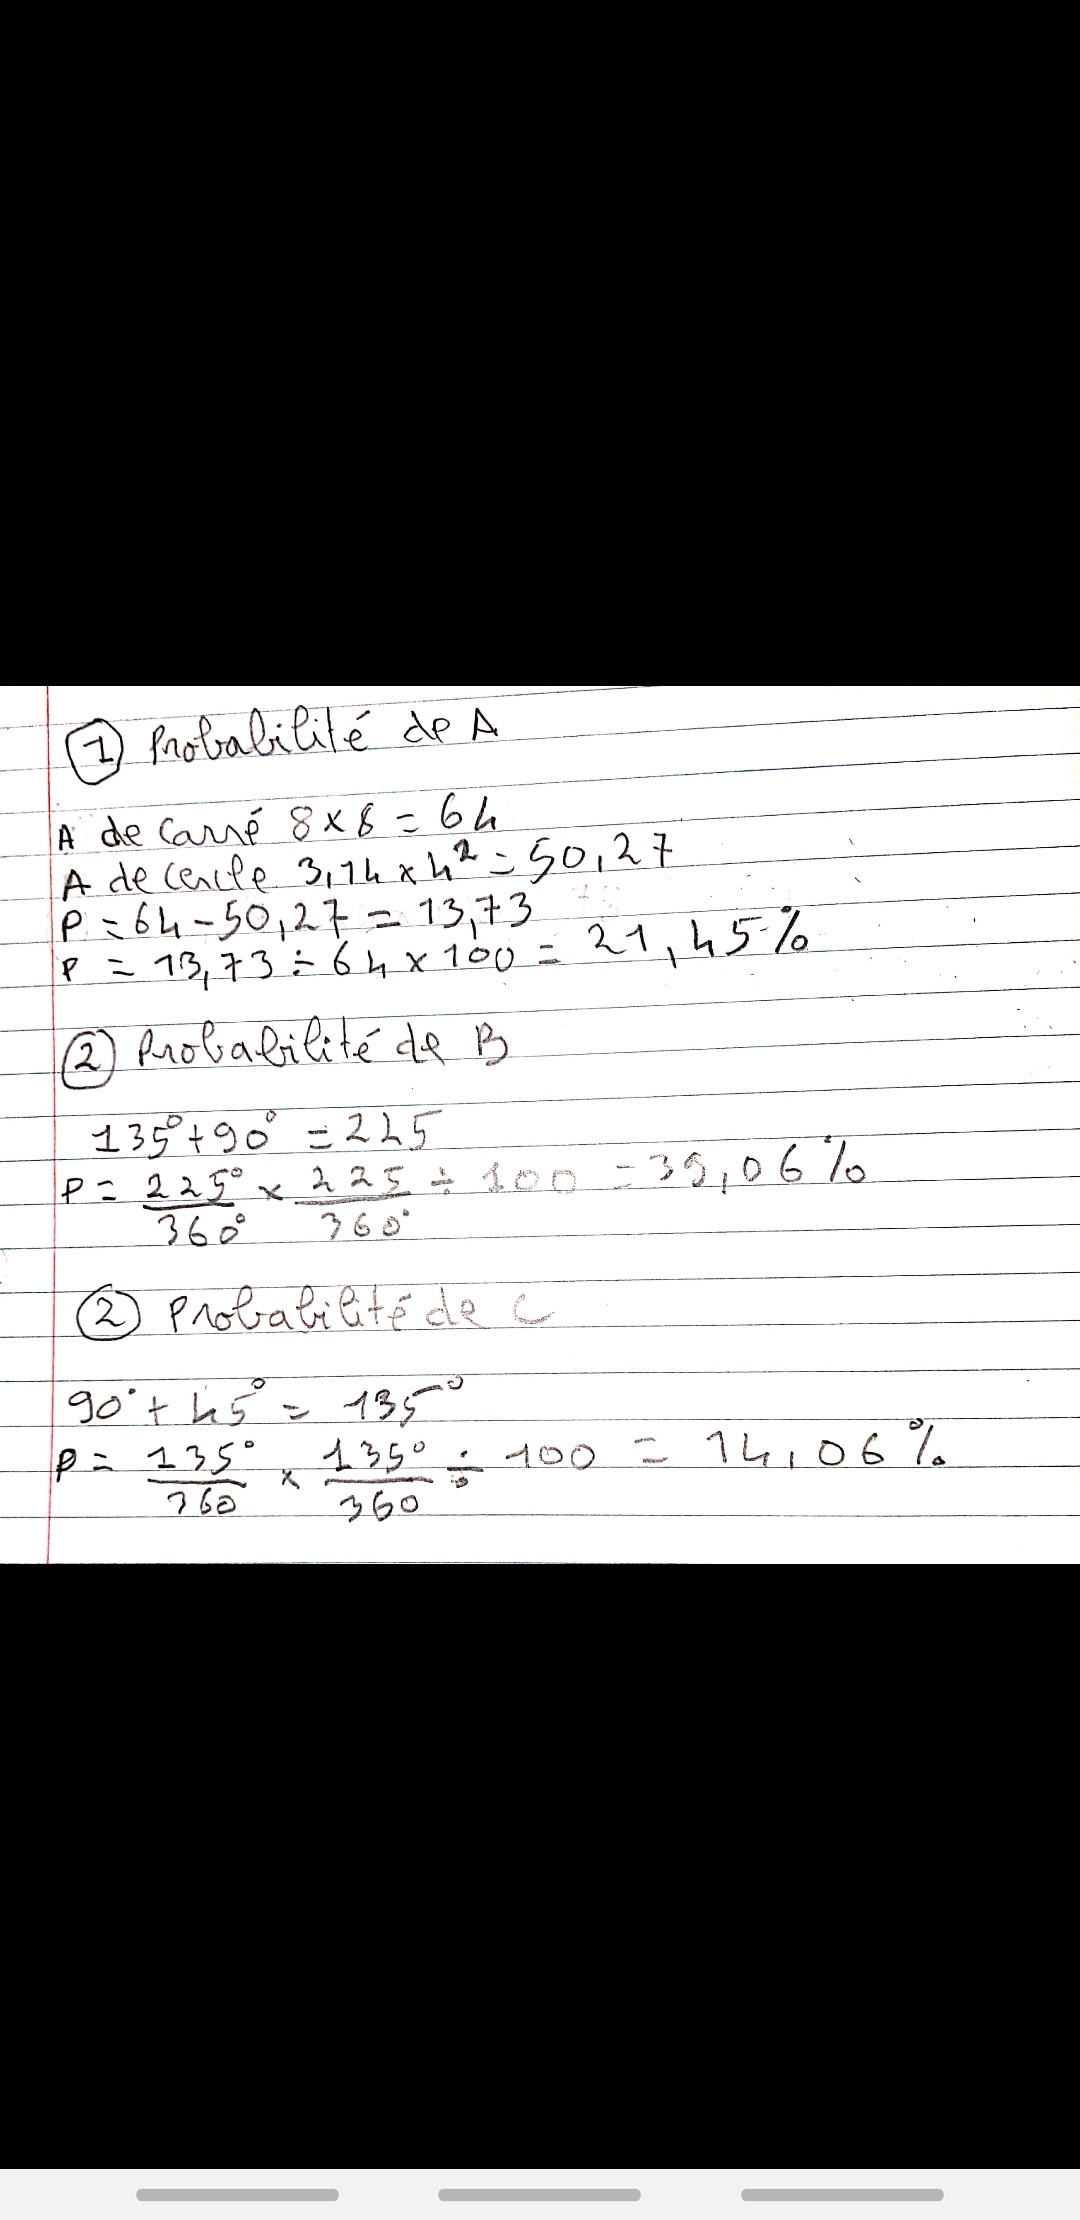 1 Probabilité de A
A de carré 8 x 8 = 64
A de cercle 3,14 x 4² = 50,27
P = 64 - 50,27 = 13,73
P = 13,73 ÷ 64 x 100 = 21,45%
2 Probabilité de B
135° + 90° = 225
P = 225°/360° x 225/360° ÷ 100 = 39,06%
2 Probabilité de C
90° + 45° = 135°
P = 135°/360 x 135°/360 ÷ 100 = 14,06%